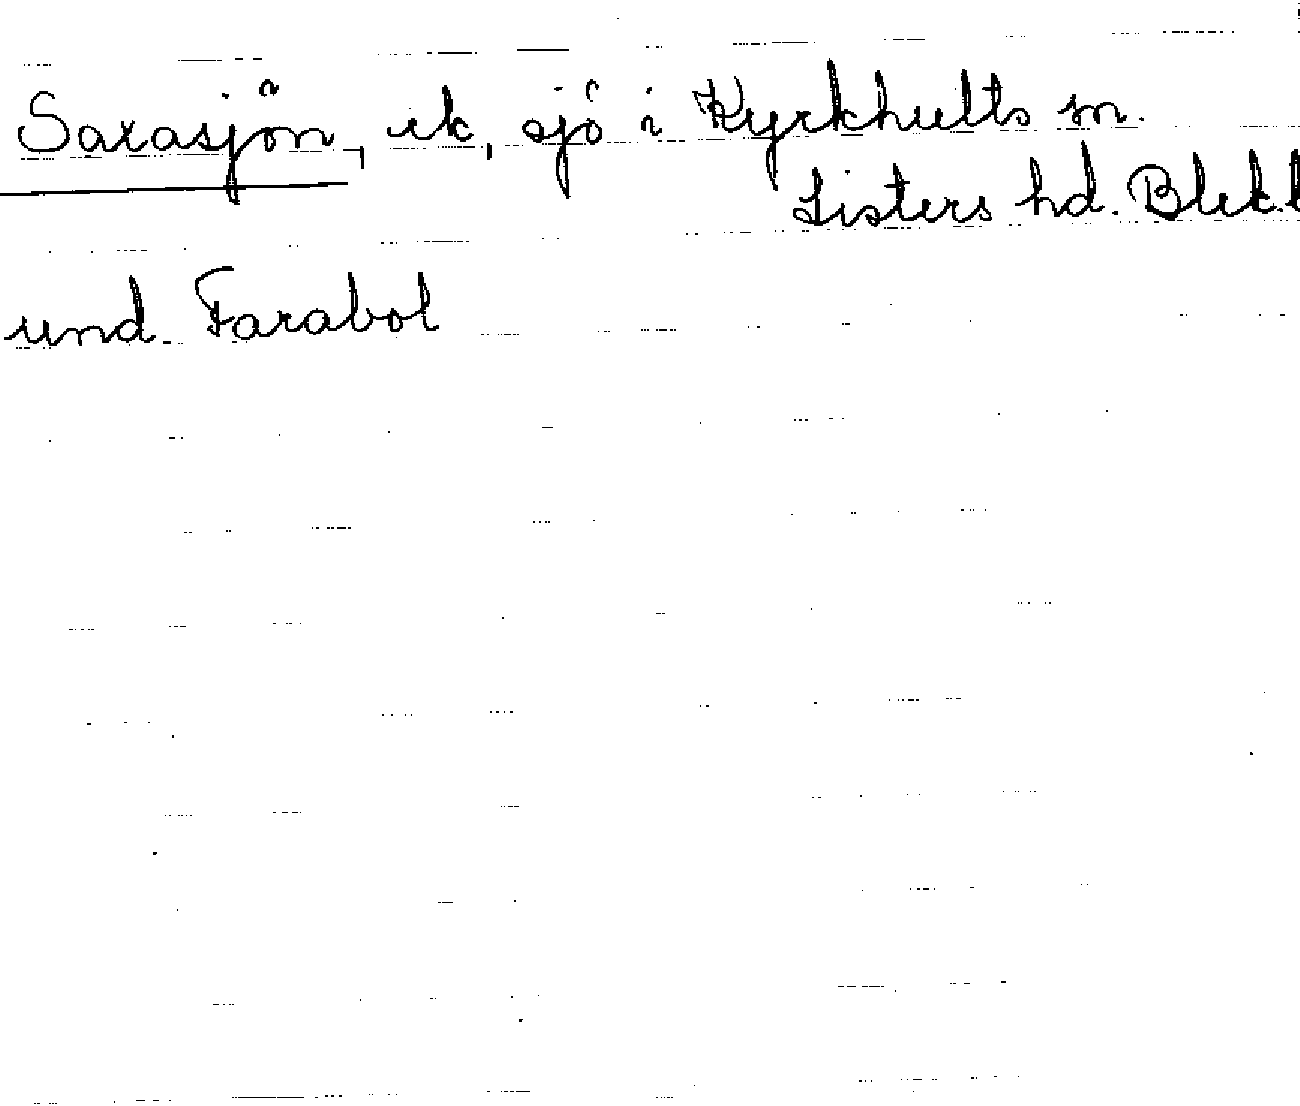 Saxasjön, ek, sjö i Kyrkhults sn.
Listers hd. Blek.l
und. Farabol